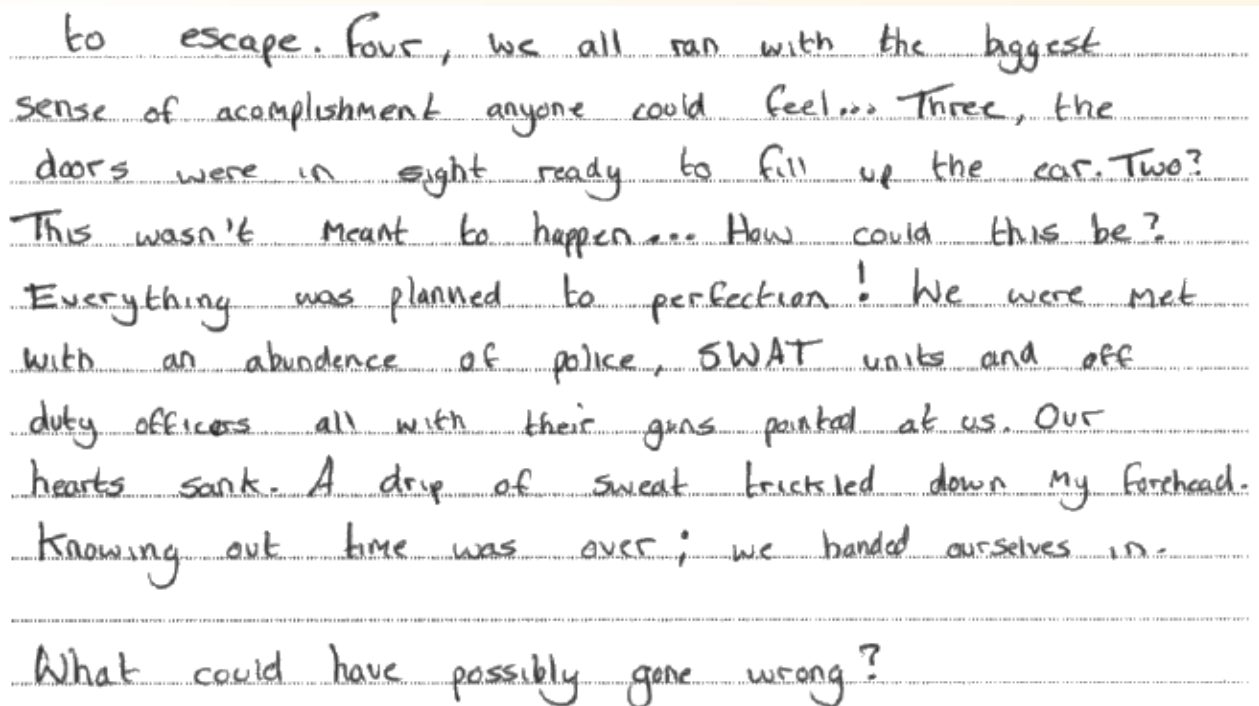 to escape. Four, we all ran with the biggest
sense of acomplishment anyone could feel... Three, the
doors were in sight ready to fill up the car. Two?
This wasn't meant to happen... How could this be?
Everything was planned to perfection! We were met
with an abundence of police, SWAT units and off
duty officers all with their guns pointed at us. Our
hearts sank. A drip of sweat trickled down my forehead.
Knowing out time was over; we handed ourselves in.
What could have possibly gone wrong?